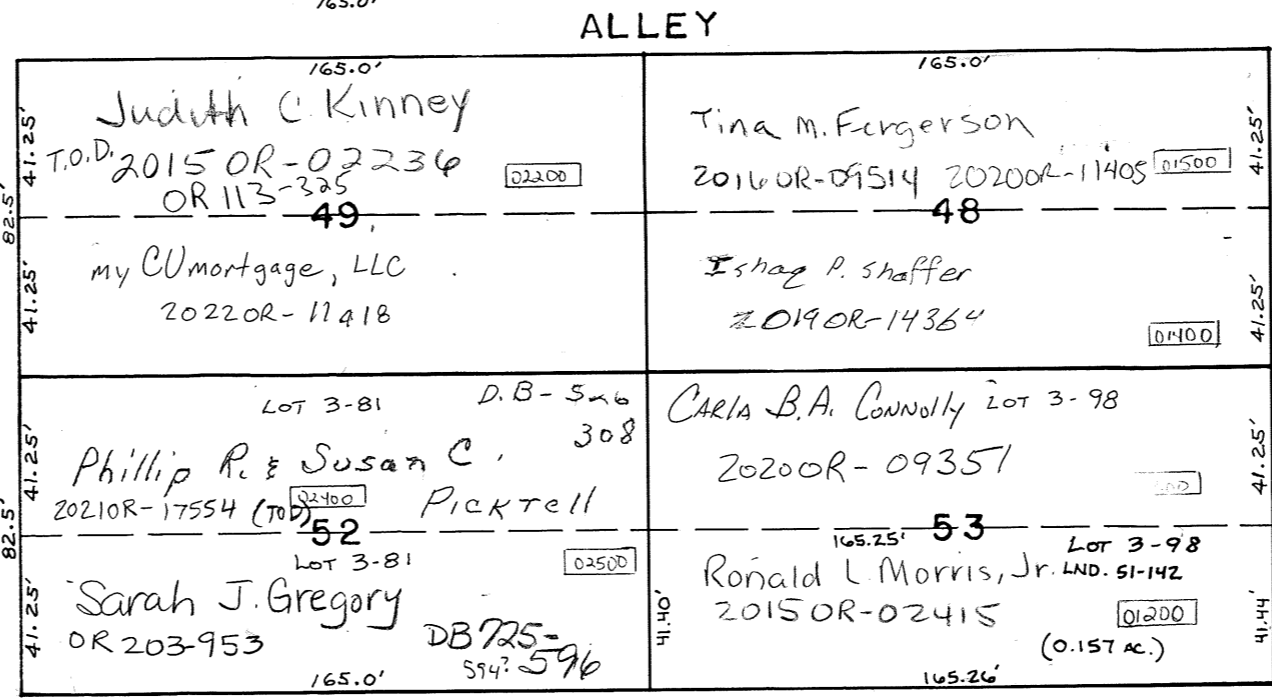 165.0'
ALLEY
165.0'
Judith C Kinney
T.O.D. 2015 OR-02236
OR 113-325
02200
41.25'
82.5'
49
41.25'
my CUmortgage, LLC
2022OR-11418
165.0'
Tina M. Fergerson
2016OR-09514 2020OR-11405
01500
41.25'
48
Ishaq P. Shaffer
2019OR-14364
01400
41.25'
LOT 3-81
D.B-526
308
Phillip R. & Susan C.
Picktell
2021OR-17554 (TOD)
02400
41.25'
82.5'
52
LOT 3-81
02500
Sarah J. Gregory
OR 203-953
DB 725-596
594?
41.25'
165.0'
Carla B.A. Connolly LOT 3-98
2020OR-09351
41.25'
53
165.25'
LOT 3-98
Ronald L Morris, Jr. LND. 51-142
2015OR-02415
01200
(0.157 AC.)
41.40'
41.44'
165.26'